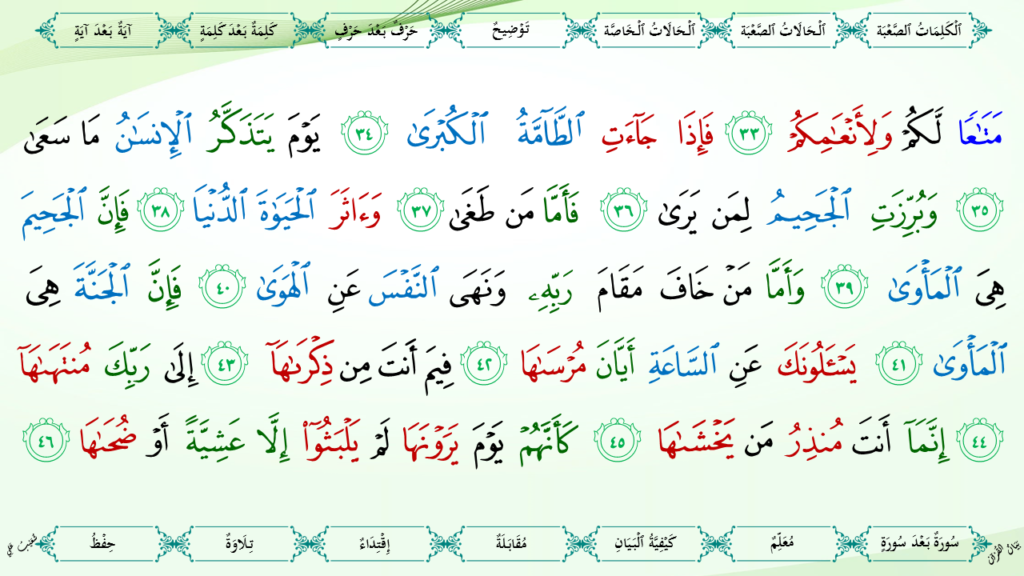 ٱلْكَلِمَاتُ ٱلصَّعْبَة ٱلْحَالَاتُ ٱلصَّعْبَة ٱلْحَالَاتُ ٱلْخَاصَّة تَوْضِيحٌ حَرْفٌ بَعْدَ حَرْفٍ كَلِمَةٌ بَعْدَ كَلِمَةٍ آيَةٌ بَعْدَ آيَةٍ
مَتَـٰعًا لَّكُمْ وَلِأَنْعَـٰمِكُمْ ٣٣ فَإِذَا جَآءَتِ ٱلطَّآمَّةُ ٱلْكُبْرَىٰ ٣٤ يَوْمَ يَتَذَكَّرُ ٱلْإِنسَـٰنُ مَا سَعَىٰ
٣٥ وَبُرِّزَتِ ٱلْجَحِيمُ لِمَن يَرَىٰ ٣٦ فَأَمَّا مَن طَغَىٰ ٣٧ وَءَاثَرَ ٱلْحَيَوٰةَ ٱلدُّنْيَا ٣٨ فَإِنَّ ٱلْجَحِيمَ
هِىَ ٱلْمَأْوَىٰ ٣٩ وَأَمَّا مَنْ خَافَ مَقَامَ رَبِّهِۦ وَنَهَى ٱلنَّفْسَ عَنِ ٱلْهَوَىٰ ٤٠ فَإِنَّ ٱلْجَنَّةَ هِىَ
ٱلْمَأْوَىٰ ٤١ يَسْـَٔلُونَكَ عَنِ ٱلسَّاعَةِ أَيَّانَ مُرْسَىٰهَا ٤٢ فِيمَ أَنتَ مِن ذِكْرَىٰهَآ ٤٣ إِلَىٰ رَبِّكَ مُنتَهَىٰهَآ
٤٤ إِنَّمَآ أَنتَ مُنذِرُ مَن يَخْشَىٰهَا ٤٥ كَأَنَّهُمْ يَوْمَ يَرَوْنَهَا لَمْ يَلْبَثُوٓا۟ إِلَّا عَشِيَّةً أَوْ ضُحَىٰهَا ٤٦
سُورَةٌ بَعْدَ سُورَةٍ مُعَلِّمٌ كَيْفِيَّةُ ٱلْبَيَانِ مُقَابَلَةٌ إِقْتِدَاءٌ تِلَاوَةٌ حِفْظُ
بَيَانُ القُرْآن